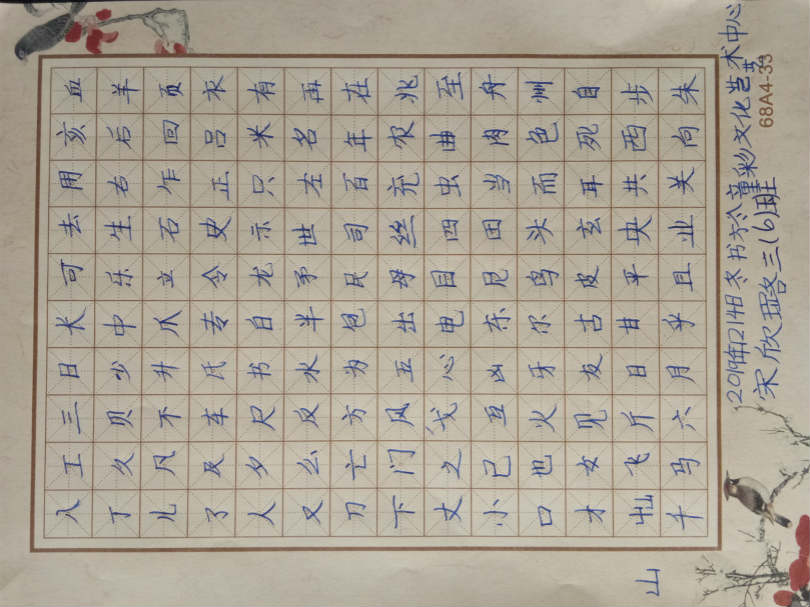 入工三日长可去用亥血
丁久贝少中乐生右后羊
儿凡不井爪立石乍回页
了及车氏专令史正吕衣
人夕尺书白龙示只米有
又么反水半矛世左名再
刀亡方为包民司百年在
下门风五出母丝充农兆
丈之戈心电目四虫曲至
小已互凶东尼田当肉舟
口也火牙尔鸟头而色州
才女见友古皮玄耳死自
飞斤日甘平央共西步
千马六月乎且业关向朱
山
2019年12月14日冬书 童彩文化艺术中心
宋欣璐三(6)班
68A4-33